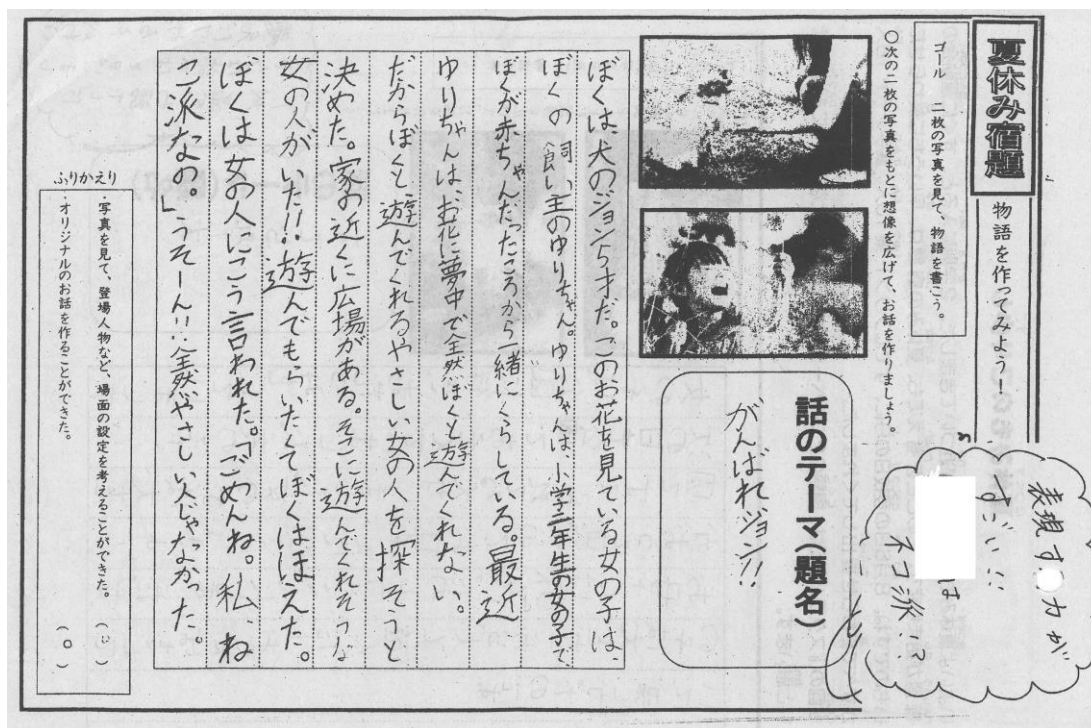 夏休み宿題
物語を作ってみよう！
ゴール　二枚の写真を見て、物語を書こう。
○次の二枚の写真をもとに想像を広げて、お話を作りましょう。
話のテーマ(題名)
がんばれジョン!!
ぼくは犬のジョン5才だ。このお花を見ている女の子は、
ぼくの飼い主のゆりちゃん。ゆりちゃんは小学二年生の女の子で
ぼくが赤ちゃんだったころから一緒にくらしている。最近
ゆりちゃんは、お花に夢中で全然ぼくと遊んでくれない。
だからぼくと遊んでくれる、やさしい女の人を探そうと
決めた。家の近くに広場がある。そこに遊んでくれそうな
女の人がいた!!遊んでもらいたくてぼくはほえた。
ぼくは女の人にこう言われた。「ごめんね。私、ね
こ派なの。」うそーん!!全然やさしい人じゃなかった。
ふりかえり
・写真を見て、登場人物など、場面の設定を考えることができた。
・オリジナルのお話を作ることができた。
表現す
力が
すごい!!
は
ネコ派!?